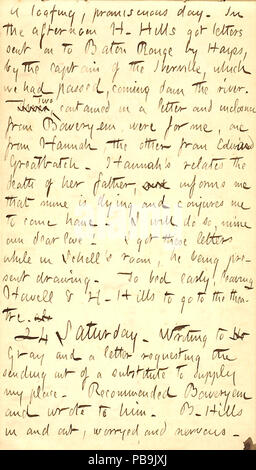 a loafing, promiscuous day. In
the afternoon H. Hills got letters
sent on to Baton Rouge by Harps,
by the captain of the Iberville, which
we had passed, coming down the river.
two, contained in a letter and inclosure
from Boweryem, were for me, one
from Hannah the other from Edward
Greatbatch. Hannah's relates the
death of her father, informs me
that mine is dying and conjures me
to come home. I will do so, mine
own dear love! I got these letters
while in Schell's room, he being pre-
sent drawing. To bed early, leaving
Howell & H. Hills to go to the thea-
tre.
24 Saturday. Writing to
Gray and a letter requesting the
sending out of a substitute to supply
my place. Recommended Boweryem
and wrote to him. B. Hills
in and out, worryed and nervous.
alamy
Image ID: PB9JXJ
www.alamy.com